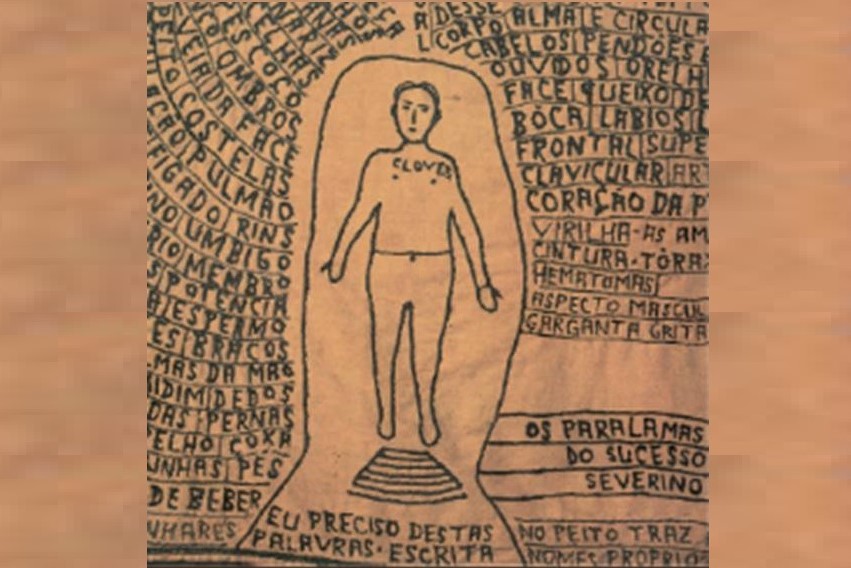 DESSE
CORPO ALMA E CIRCULA
CABELOS PENDÕES E
OUVDOS ORELH
FACE QUEIXO DE
BÔCA LABIOS L
FRONTAL SUPE
CLAVICULAR ART
CORAÇÃO DA P
VIRILHA-AS AM
CINTURA-TÓRA
HEMATOMAS
ASPECTO MASCUL
GARGANTA GRITA
COCO
OMBROS
VEIA DA FACE
PEITO COSTELAS
PULMÃO
FIGADO RINS
UMBIGO
RIO MEMBRO
S POTÊNCIA
ESPERMO
ES BRAÇOS
MAS DA MÃO
IDIM DEDOS
DAS PERNAS
ELHO COXA
UNHAS PÉS
DE BEBER
NHARES
CLOVES
EU PRECISO DESTAS
PALAVRAS. ESCRITA
OS PARALAMAS
DO SUCESSO
SEVERINO
NO PEITO TRAZ
NOMES PROPRIO